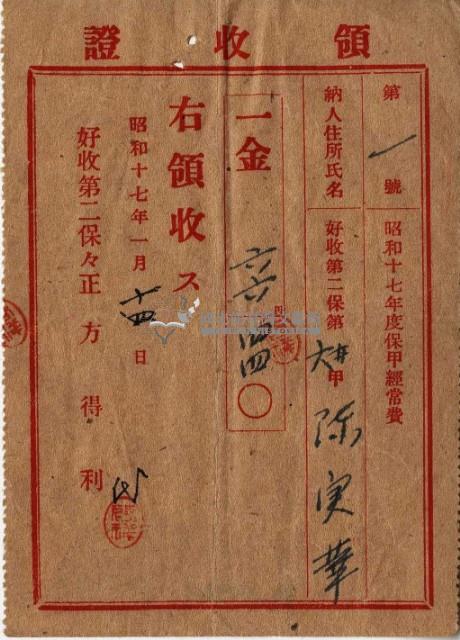 領收證
第一號 昭和十七年度保甲經常費
納人住所氏名 好收第二保第甲 陳実華
一金 〇
右領收ス
昭和十七年一月十四日
好收第二保々正 方得利